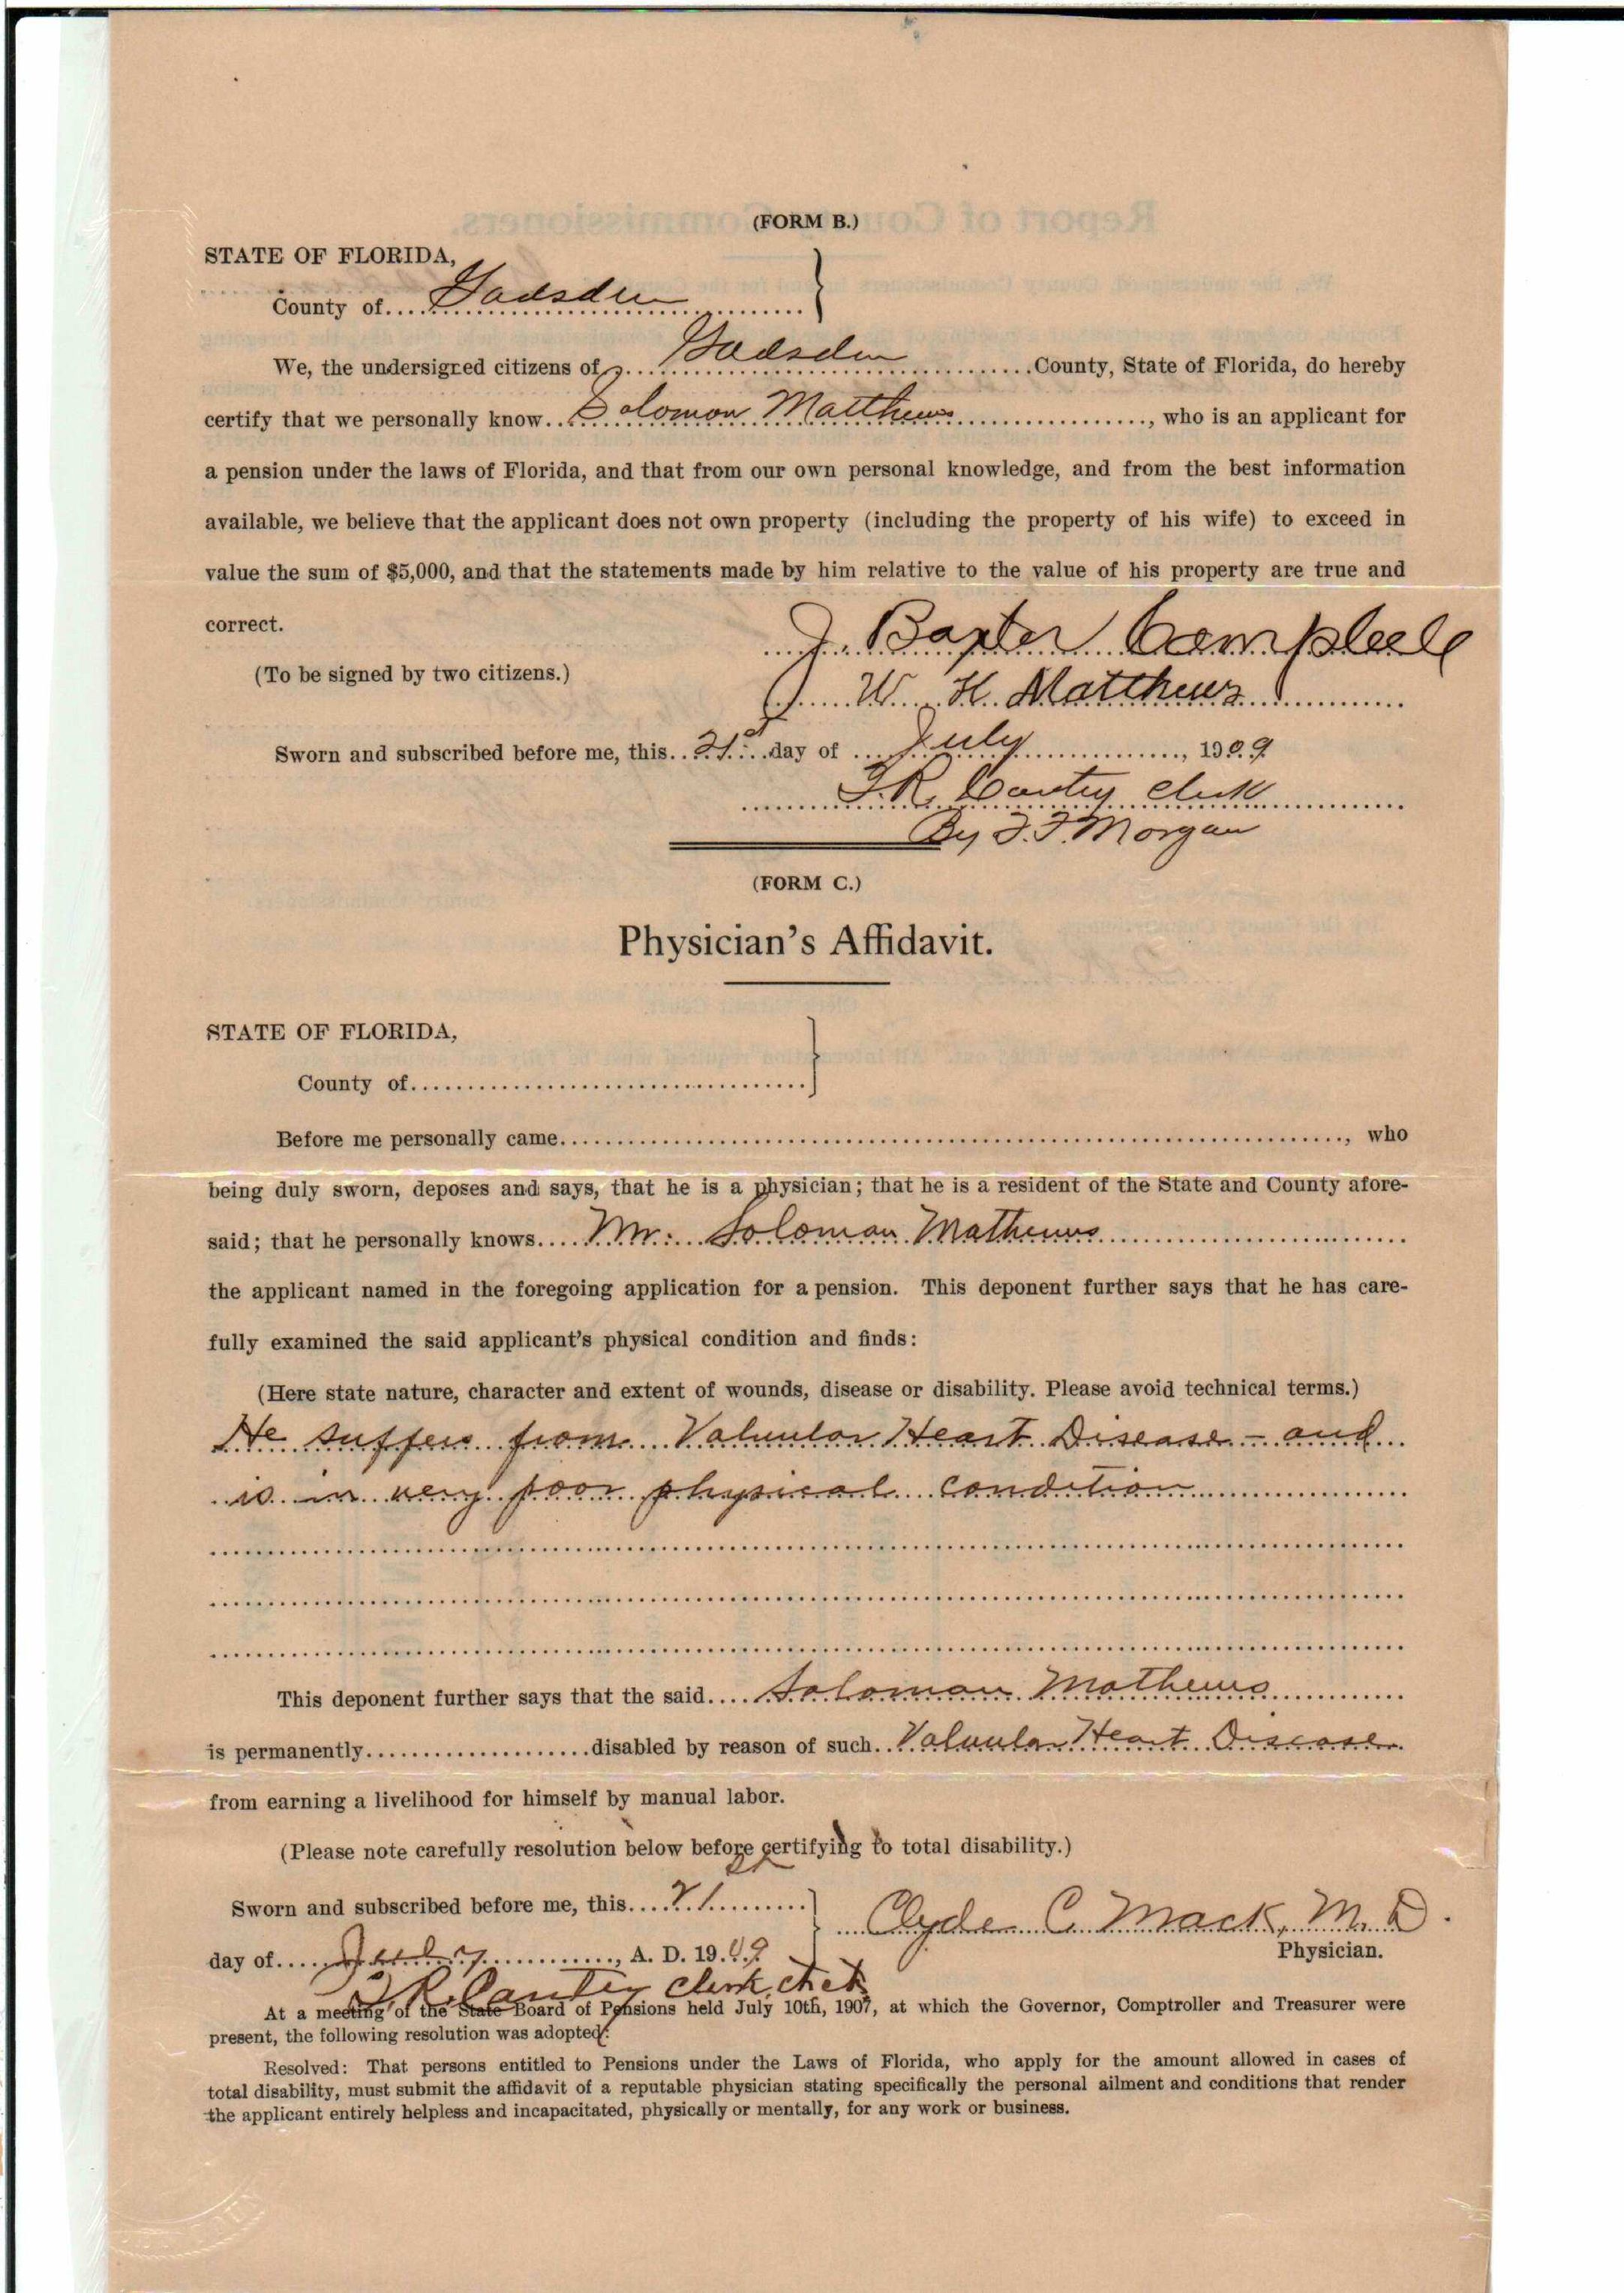 (FORM B.)
STATE OF FLORIDA,
County of Gadsden
We, the undersigned citizens of Gadsden County, State of Florida, do hereby
certify that we personally know Solomon Matthews, who is an applicant for
a pension under the laws of Florida, and that from our own personal knowledge, and from the best information
available, we believe that the applicant does not own property (including the property of his wife) to exceed in
value the sum of $5,000, and that the statements made by him relative to the value of his property are true and
correct.
J. Baxter Campbell
(To be signed by two citizens.)
W. H. Matthews
Sworn and subscribed before me, this 21st day of July, 1909
Clerk
By F. F. Morgan
(FORM C.)
Physician's Affidavit.
STATE OF FLORIDA,
County of
Before me personally came, who
being duly sworn, deposes and says, that he is a physician; that he is a resident of the State and County afore-
said; that he personally knows Mr. Soloman Mathews
the applicant named in the foregoing application for a pension. This deponent further says that he has care-
fully examined the said applicant's physical condition and finds:
(Here state nature, character and extent of wounds, disease or disability. Please avoid technical terms.)
He suffers from Valvular Heart Disease - and
is in very poor physical condition
This deponent further says that the said Soloman Mathews
is permanently disabled by reason of such Valvular Heart Disease
from earning a livelihood for himself by manual labor.
(Please note carefully resolution below before certifying to total disability.)
Sworn and subscribed before me, this 21st
Clyde C. Mack, M.D.
day of July, A. D. 1909
Physician.
Clerk
At a meeting of the State Board of Pensions held July 10th, 1907, at which the Governor, Comptroller and Treasurer were
present, the following resolution was adopted:
Resolved: That persons entitled to Pensions under the Laws of Florida, who apply for the amount allowed in cases of
total disability, must submit the affidavit of a reputable physician stating specifically the personal ailment and conditions that render
the applicant entirely helpless and incapacitated, physically or mentally, for any work or business.